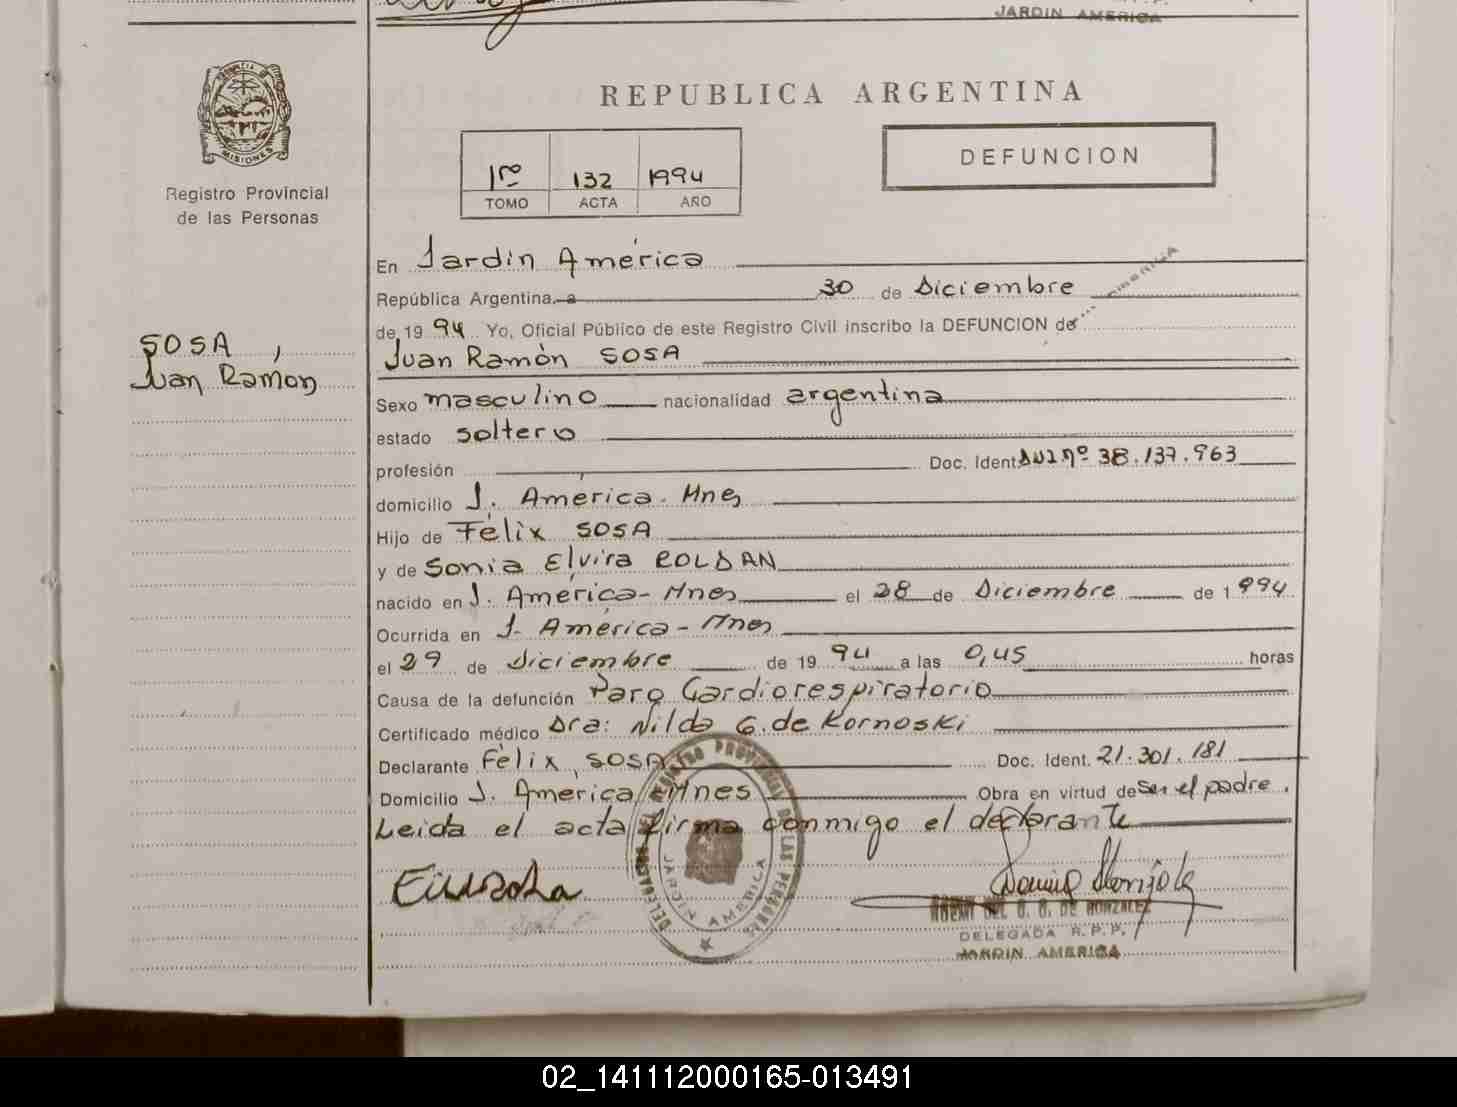 JARDIN AMERICA
PROVINCIA DE
MISIONES
Registro Provincial
de las Personas
REPUBLICA ARGENTINA
1ro 132 1994
TOMO ACTA AÑO
DEFUNCION
SOSA,
Juan Ramón
En Jardin América
República Argentina, a 30 de Diciembre
AMERICA
de 1994 Yo, Oficial Público de este Registro Civil inscribo la DEFUNCION de
Juan Ramón SOSA
Sexo masculino nacionalidad argentina
estado soltero
profesión Doc. Ident. DNI nº 38.137.963
domicilio J. América - Mnes
Hijo de Félix SOSA
y de Sonia Elvira ROLDAN
nacido en J. América - Mnes el 28 de Diciembre de 1994
Ocurrida en J. América - Mnes
el 29 de Diciembre de 1994 a las 0,45 horas
Causa de la defunción Paro Cardiorespiratorio
Certificado médico Dra: Nilda G. de Kornoski
Declarante Félix SOSA Doc. Ident. 21.301.181
Domicilio J. América - Mnes Obra en virtud de ser el padre.
Leida el acta firma conmigo el declarante
REGISTRO PROVINCIAL DE LAS PERSONAS
JARDIN AMERICA
DEL C. G. DE GONZALEZ
DELEGADA R.P.P.
JARDIN AMERICA
02_141112000165-013491